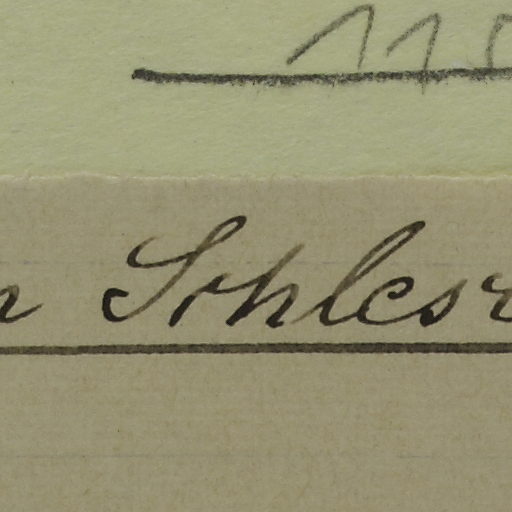 11
Schles